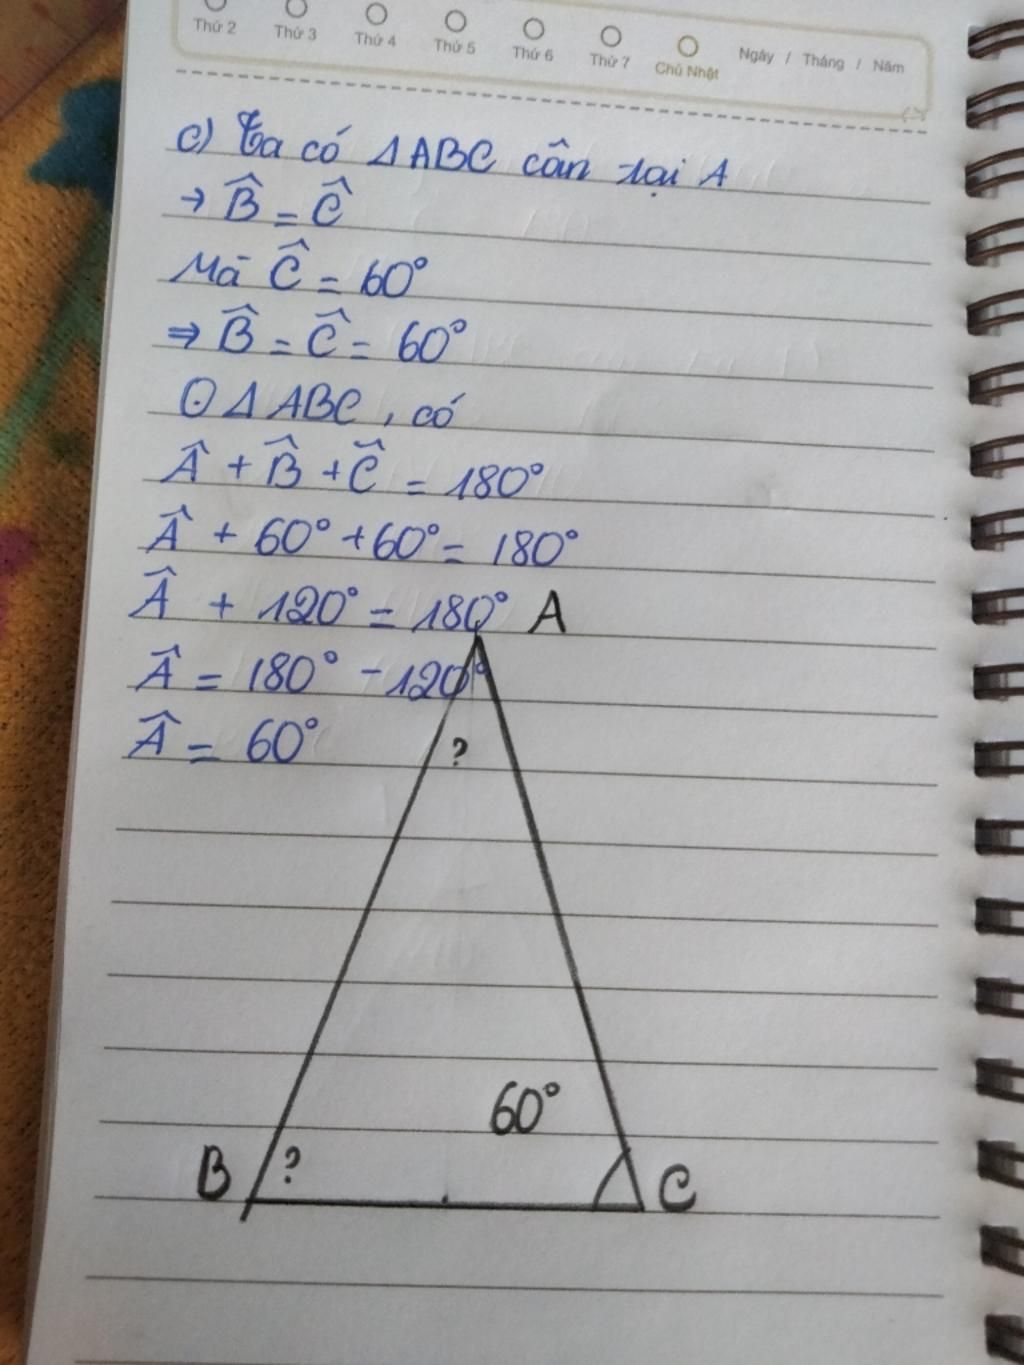 Thứ 2 Thứ 3 Thứ 4 Thứ 5 Thứ 6 Thứ 7 Chủ Nhật Ngày / Tháng / Năm
c) Ta có ΔABC cân tại A
→ B̂ = Ĉ
Mà Ĉ = 60°
⇒ B̂ = Ĉ = 60°
⊙ ΔABC, có
Â + B̂ + Ĉ = 180°
Â + 60° + 60° = 180°
Â + 120° = 180°
Â = 180° - 120°
Â = 60°
A
?
60°
B
?
C